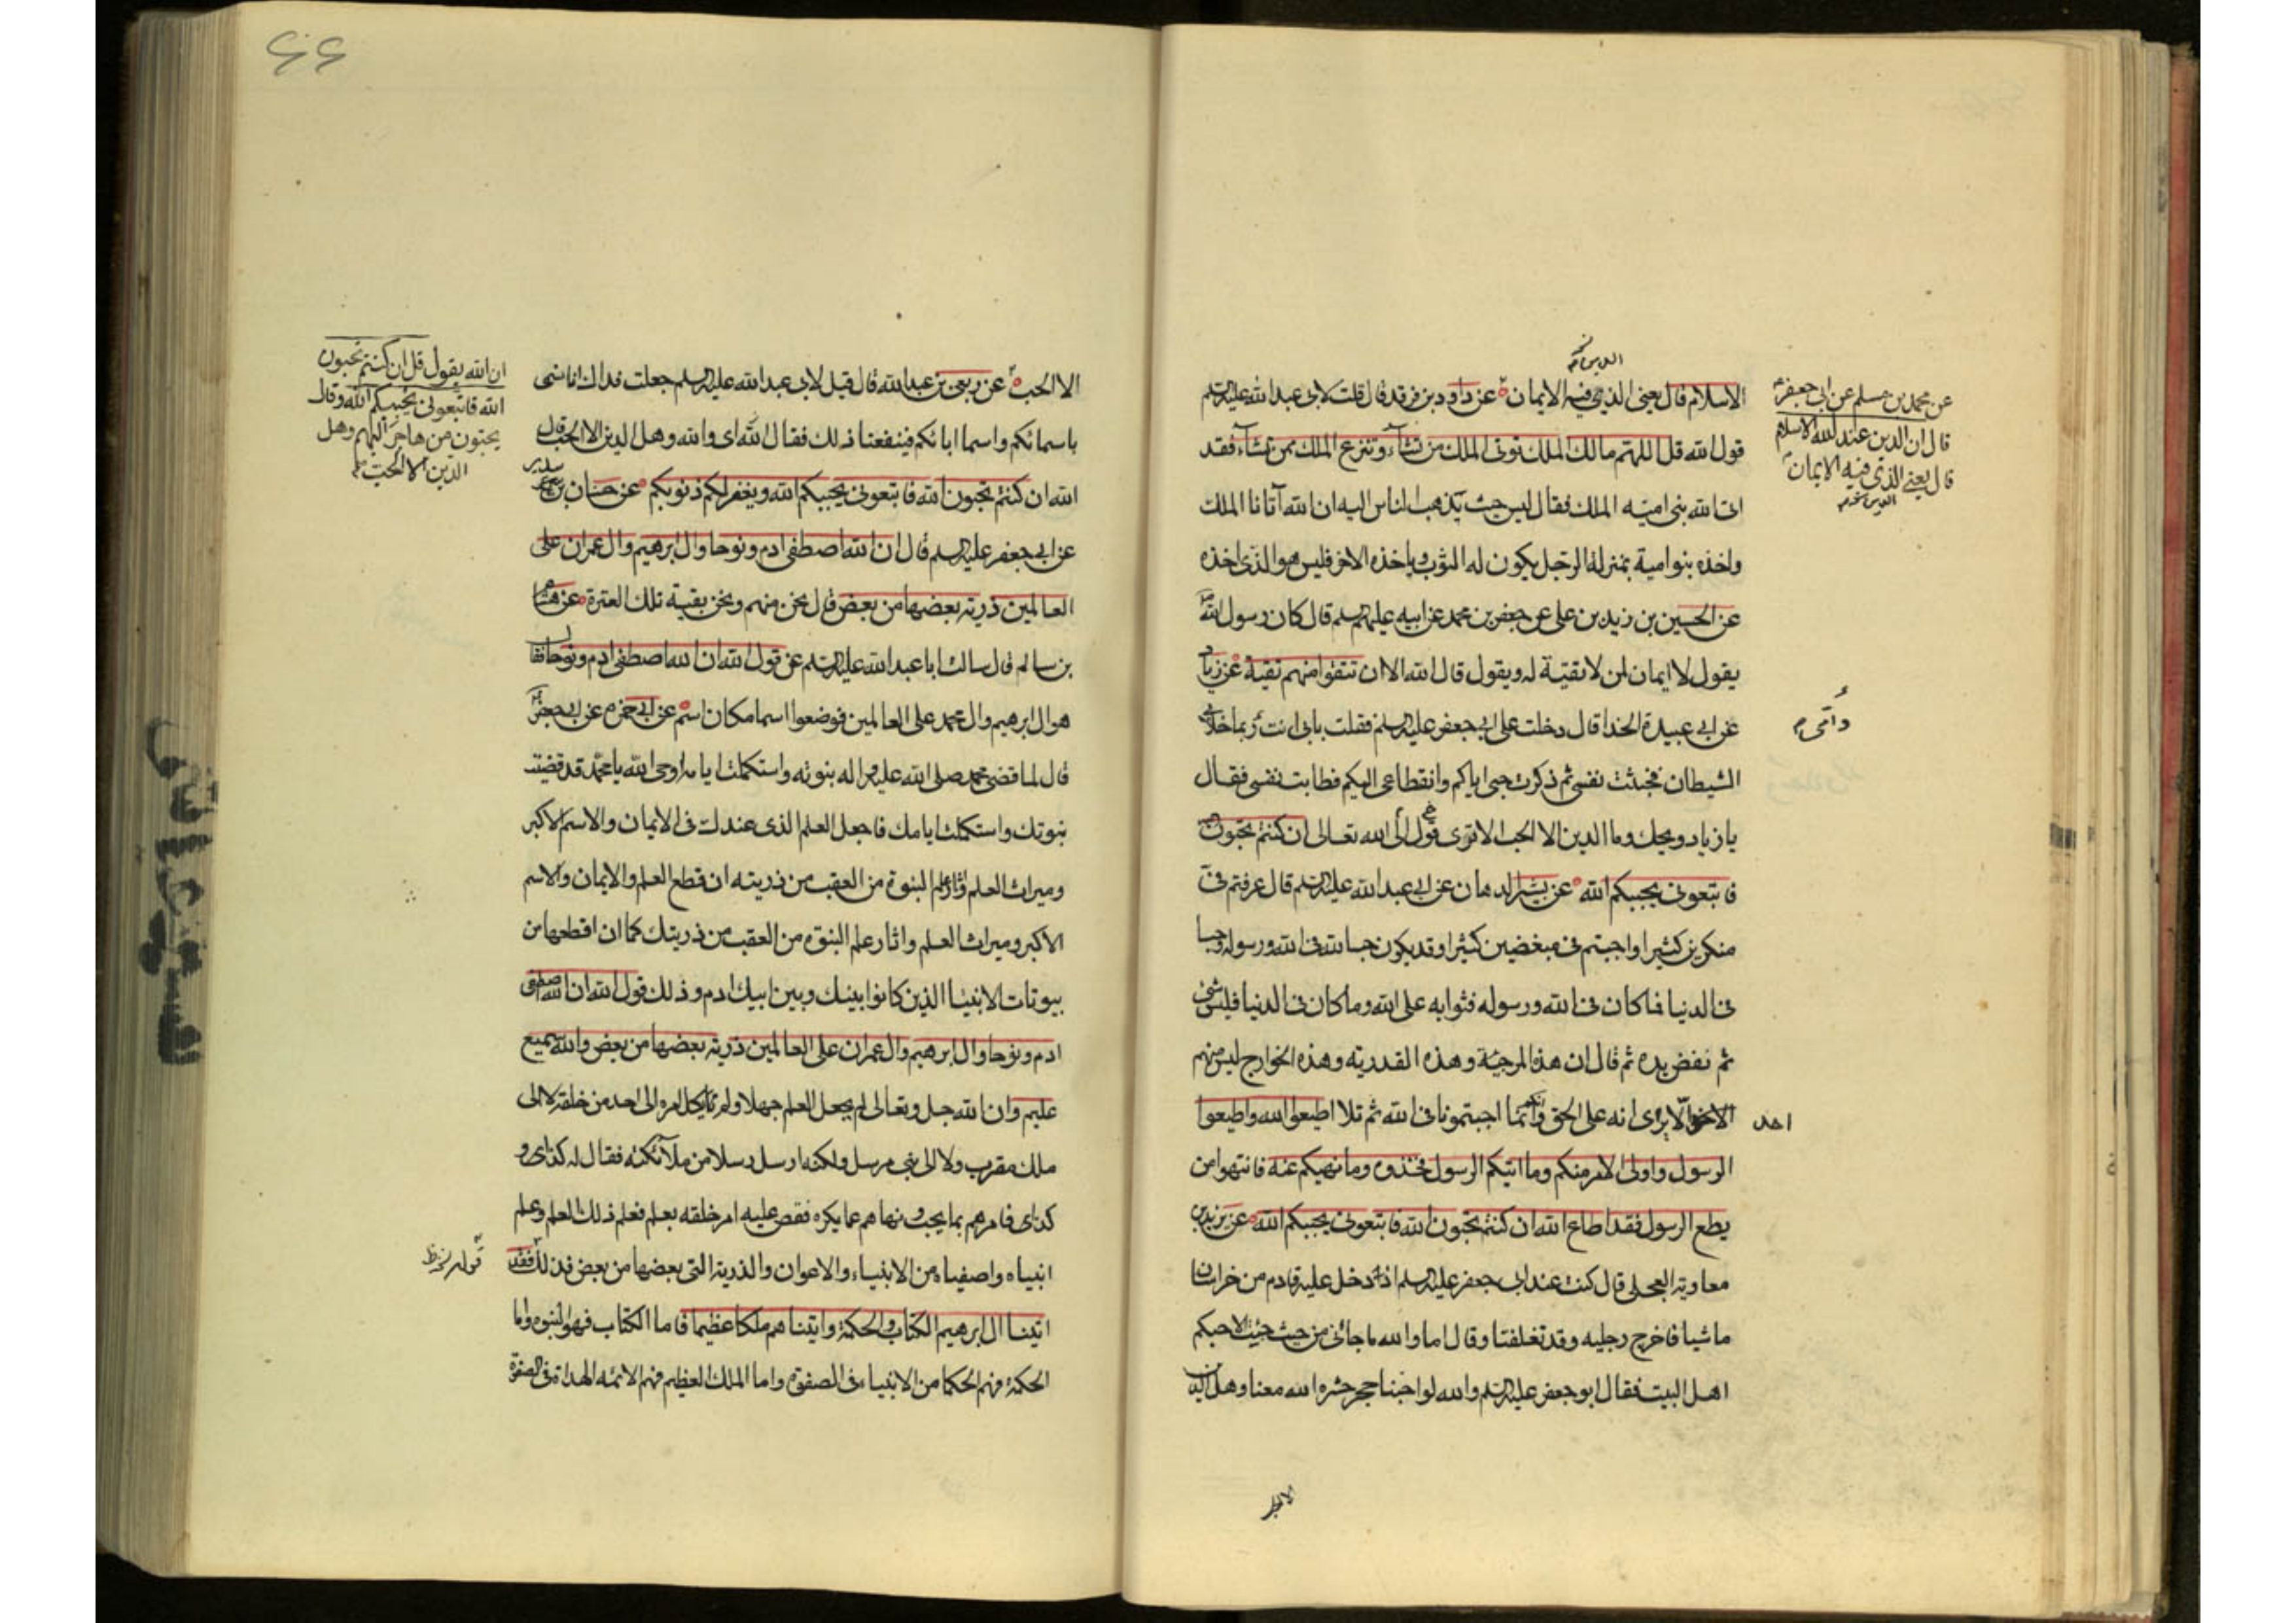 الدين نخ‍ م
الاسلام قال يعنى الذى فيه الايمان عن داود بن فرقد قال قلت لابى عبد الله عليه السلم
قول الله قل اللهم مالك الملك توتى الملك من تشآء وتنزع الملك ممن تشآء فقد
اتى الله بنى اميه الملك فقال ليس حيث يذهب الناس اليه ان الله آتانا الملك
واخذه بنو امية بمنزلة الرجل يكون له الثوب وياخذه الاخر فليس هو للذى اخذه
عن الحسين بن زيد بن على عن جعفر بن محمد عن ابيه عليهم السلم قال كان رسول الله
يقول لا ايمان لمن لا تقية له ويقول قال الله الا ان تتقوا منهم تقية عن زياد
عن ابى عبيدة الحذا قال دخلت على ابى جعفر عليه السلم فقلت بابى انت ربما خلا بى
الشيطان فخبثت نفسى ثم ذكرت حبى اياكم وانقطاعى اليكم فطابت نفسى فقال
يا زياد ويحك وما الدين الا الحب الا ترى قول الى الله تعالى ان كنتم تحبون
فاتبعونى يحببكم الله عن بشير الدهان عن ابى عبد الله عليه السلم قال عرفتم فى
منكرين كثيرا واحببتم فى مبغضين كثيرا وقد يكون حبا لله فى الله ورسوله وحبا
فى الدنيا فما كان فى الله ورسوله فثوابه على الله وما كان فى الدنيا فليس شى
ثم نفض يده ثم قال ان هذه المرجئة وهذه القدرية وهذه الخوارج ليس منهم
الا يرى انه على الحق وانكم انما احببتمونا فى الله ثم تلا اطيعوا الله واطيعوا
الرسول واولى الامر منكم وما اتيكم الرسول فخذوه وما نهيكم عنه فانتهوا من
يطع الرسول فقد اطاع الله ان كنتم تحبون الله فاتبعونى يحببكم الله عن بريد بن
معاوية العجلى قال كنت عند ابى جعفر عليه السلم اذ دخل عليه قادم من خراسان
ماشيا فاخرج رجليه وقد تغلفتا وقال اما والله ما جائنى من حيث جئت الا حبكم
اهل البيت فقال ابو جعفر عليه السلم والله لو احبنا حجر حشره الله معنا وهل الدين
عن محمد بن مسلم عن ابى جعفر
قال ان الدين عند الله الاسلام
قال يعنى الذى فيه الايمان
الدين نخ‍ م
وامى م
احد
الا الحب
٤٤
الا الحب عن ربعى بن عبد الله قال قيل لابى عبد الله عليه السلم جعلت فداك انا نسمى
باسمائكم واسما ابائكم فينفعنا ذلك فقال اى والله وهل الدين الا الحب قال
الله ان كنتم تحبون الله فاتبعونى يحببكم الله ويغفر لكم ذنوبكم عن حنان بن سدير
عن ابى جعفر عليه السلم قال ان الله اصطفى ادم ونوحا وال ابرهيم وال عمران على
العالمين ذرية بعضها من بعض قال نحن منهم ونحن بقية تلك العترة عن هشام
بن سالم قال سالت ابا عبد الله عليه السلم عن قول الله ان الله اصطفى ادم ونوحا فقال
هو ال ابرهيم وال محمد على العالمين فوضعوا اسما مكان اسم عن ابى حمزه عن ابى جعفر
قال لما قضى محمد صلى الله عليه واله نبوته واستكملت ايامه اوحى الله يا محمد قد قضيت
نبوتك واستكملت ايامك فاجعل العلم الذى عندك فى الايمان والاسم الاكبر
وميراث العلم واثار علم النبوة من العقب من ذريته ان قطع العلم والايمان والاسم
الاكبر وميراث العلم واثار علم النبوة من العقب من ذريتك كما ان اقطعها من
بيوتات الانبيا الذين كانوا بينك وبين ابيك ادم وذلك قول الله ان الله اصطفى
ادم ونوحا وال ابرهيم وال عمران على العالمين ذرية بعضها من بعض والله سميع
عليم وان الله جل وتعالى لم يجعل العلم جهلا ولم يكل امره الى احد من خلقه لا الى
ملك مقرب ولا الى نبى مرسل ولكنه ارسل رسلا من ملآئكته فقال له كذى و
كذى فامرهم بما يحب ونهاهم عما يكره فقص عليه امر خلقه بعلم فعلم ذلك العلم وعلم
انبياه واصفياه من الانبياء والاعوان والذرية التى بعضها من بعض فذلك فقد
اتينا ال ابرهيم الكتاب والحكمة واتيناهم ملكا عظيما فاما الكتاب فهو النبوه واما
الحكمة فهم الحكما من الانبياء فى الصفوة واما الملك العظيم فهم الائمه الهداة فى الصفوة
ان الله يقول قل ان كنتم تحبون
الله فاتبعونى يحببكم الله وقال
يحبون من هاجر اليهم وهل
الدين الا الحب
قوله نخ‍ ظ